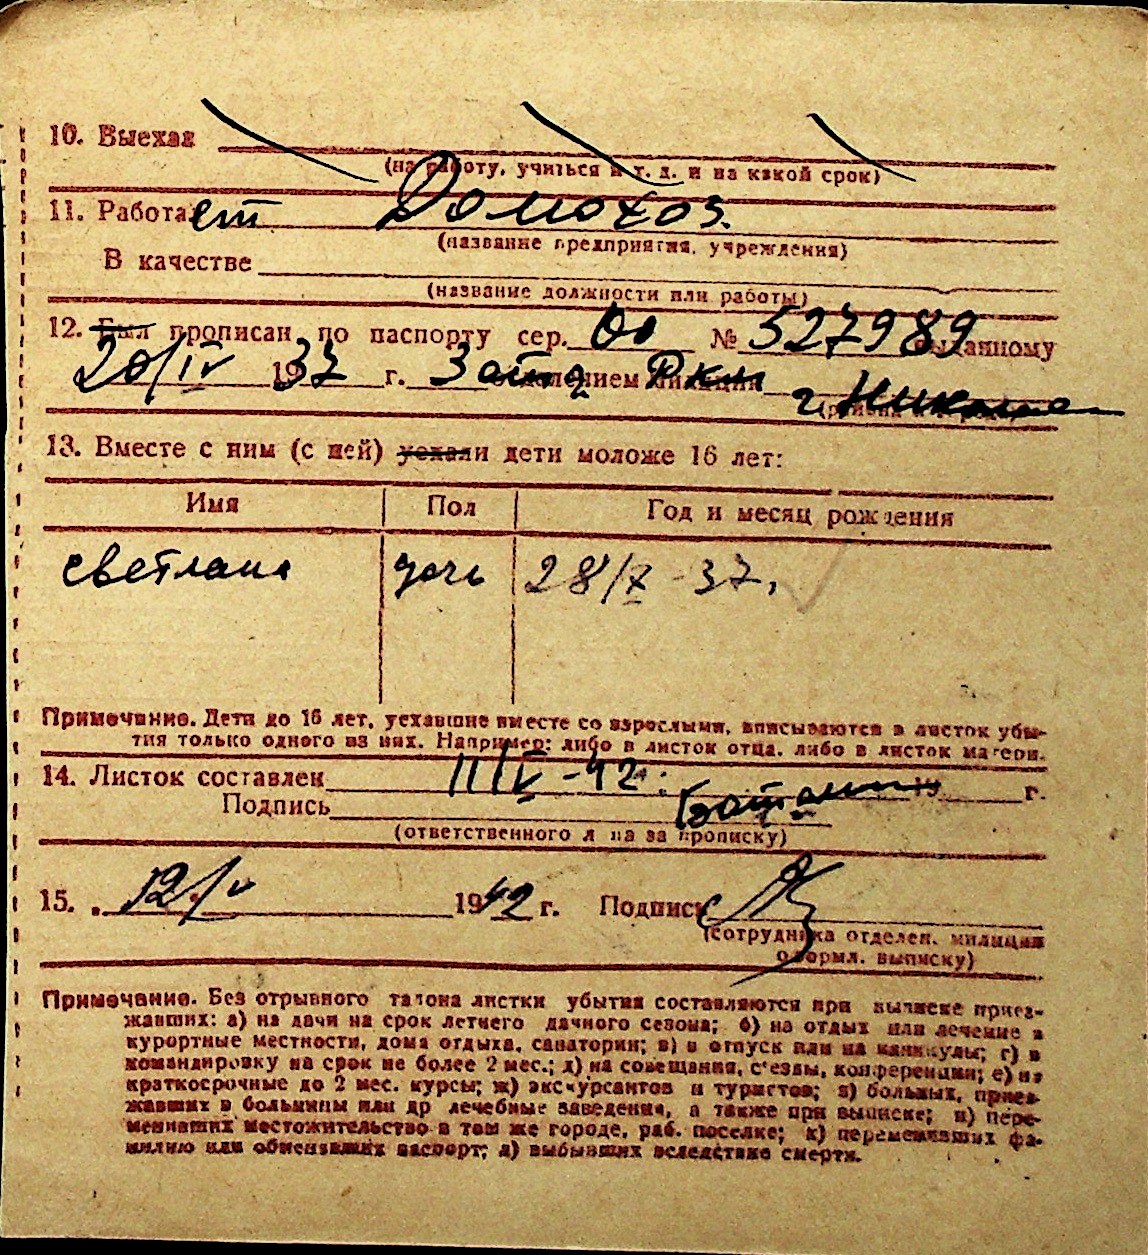 10. Выехал
(на работу, учиться и т. д. и на какой срок)
11. Работает Домохоз.
(название предприятия, учреждения)
В качестве
(название должности или работы)
12. Был прописан по паспорту сер. № 527989 выданному
20/IV 1937 г. 3 отделением милиции Ркм
г. Николаев
13. Вместе с ним (с ней) уехали дети моложе 16 лет:
Имя Пол Год и месяц рождения
Светлана дочь 28/X - 37.
Примечание. Дети до 16 лет, уехавшие вместе со взрослыми, вписываются в листок убы-
тия только одного из них. Например: либо в листок отца, либо в листок матери.
14. Листок составлен 11/V - 42 19 г.
Подпись
(ответственного лица за прописку)
15. 12/V 1942 г. Подпись
(сотрудника отделен. милиции
оформл. выписку)
Примечание. Без отрывного талона листки убытия составляются при выписке приез-
жавших: а) на дачи на срок летнего дачного сезона; б) на отдых или лечение в
курортные местности, дома отдыха, санатории; в) в отпуск или на каникулы; г) в
командировку на срок не более 2 мес.; д) на совещания, съезды, конференции; е) на
краткосрочные до 2 мес. курсы; ж) экскурсантов и туристов; з) больных, приез-
жавших в больницы или др лечебные заведения, а также при выписке; и) пере-
менивших местожительство в том же городе, раб. поселке; к) переменивших фа-
милию или обменявших паспорт; л) выбывших вследствие смерти.